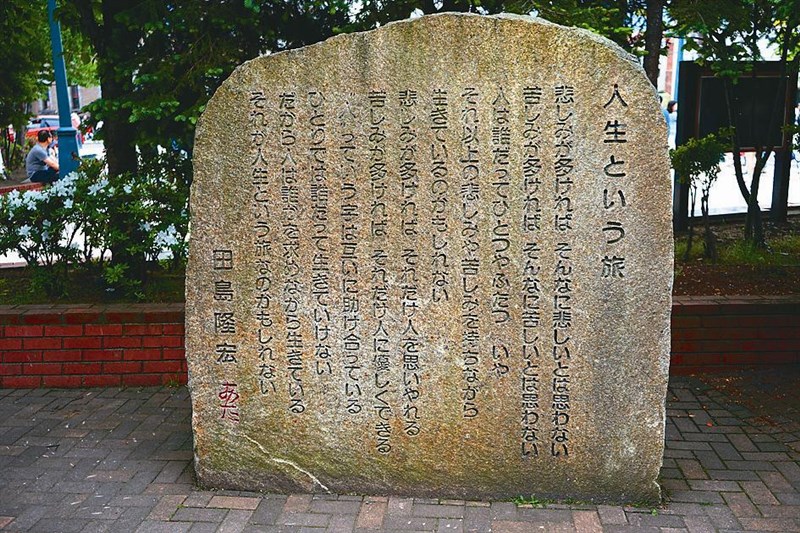 人生という旅
悲しみが多ければ そんなに悲しいとは思わない
苦しみが多ければ そんなに苦しいとは思わない
人は誰だってひとつやふたつ いや
それ以上の悲しみや苦しみを持ちながら
生きているのかもしれない
悲しみが多ければ それだけ人を思いやれる
苦しみが多ければ それだけ人に優しくできる
人っていう字は互いに助け合っている
ひとりでは誰だって生きていけない
だから人は誰かを求めながら生きている
それが人生という旅なのかもしれない
田島隆宏